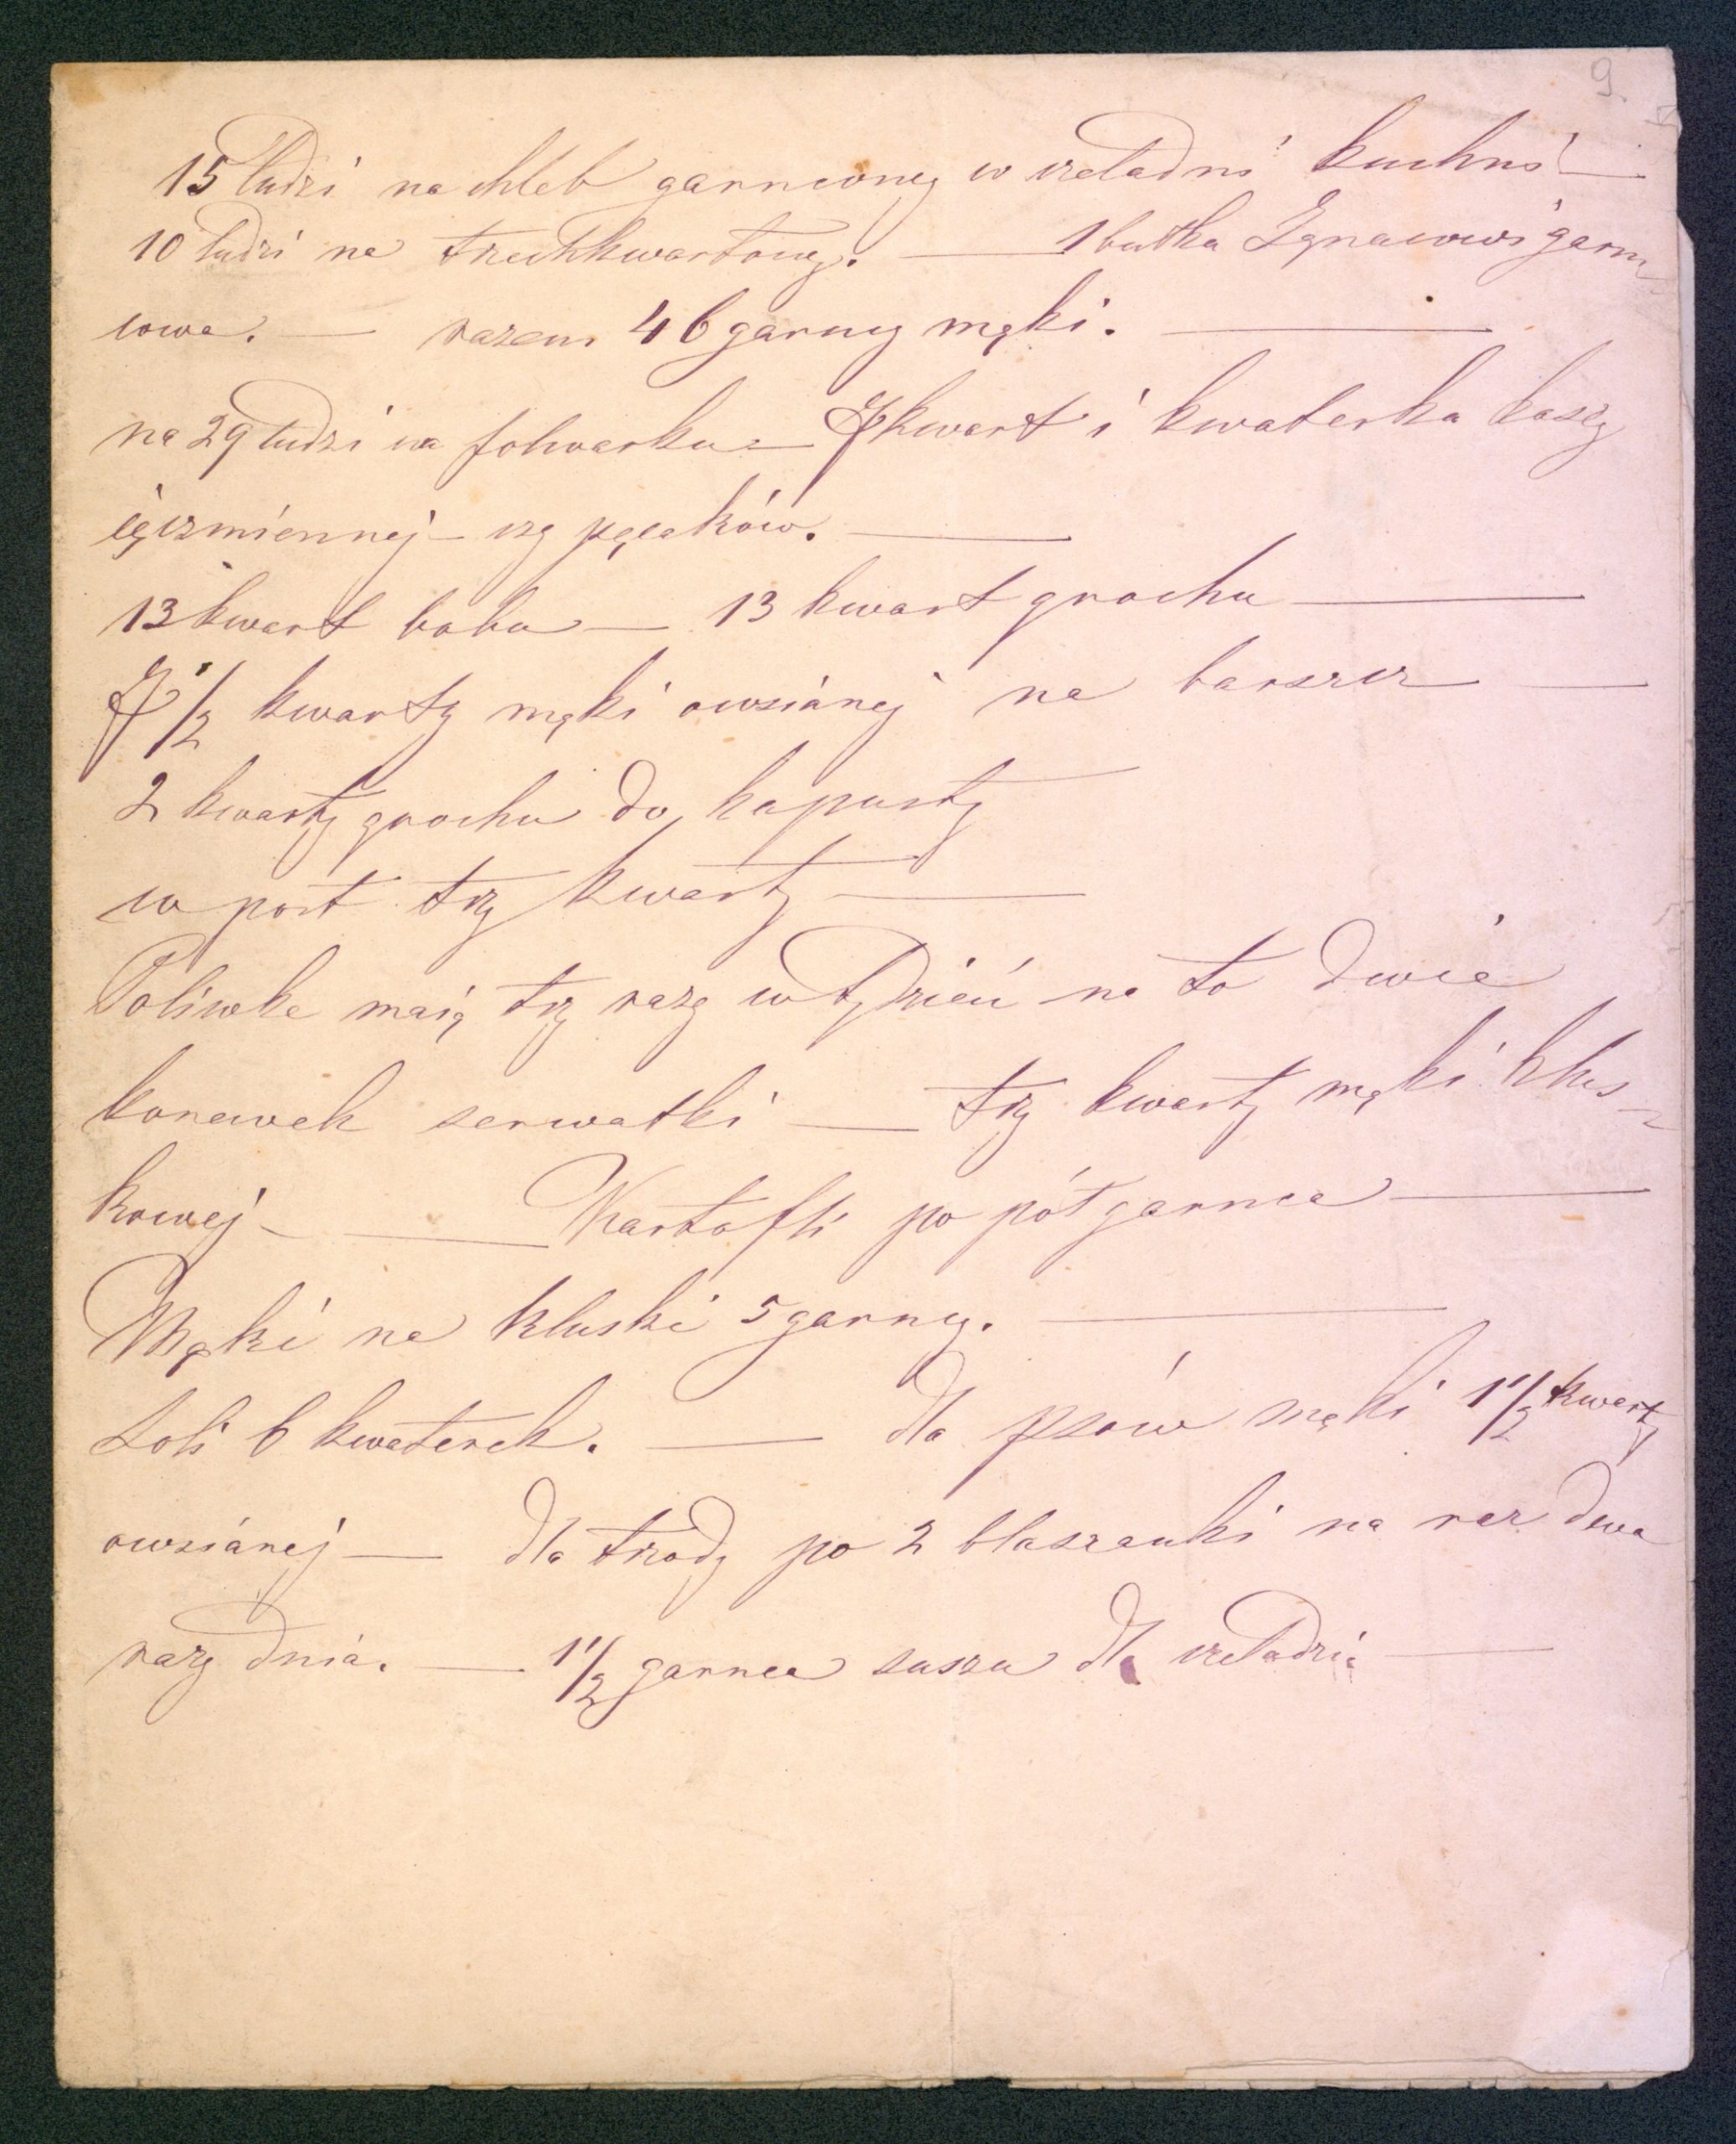 9.
15 ludzi na chleb garncowy w czeladni kuchni —
10 ludzi na trzechkwartowy. — 1 bułka Ignacowi garn
cowa. — razem 46 garncy mąki. —
na 29 ludzi na folwarku — 7 kwart i kwaterka kaszy
ięczmiennej — czy pęcaków. —
13 kwart bobu — 13 kwart grochu —
7 1/2 kwarty mąki owsianéj na barszcz —
2 kwarty grochu do kapusty
w post trzy kwarty —
Poliwke maią trzy razy w tydzień na to dwie
konewek serwatki — trzy kwarty mąki klus-
kowej — Kartofli po pół garnca —
Mąki na kluski 5 garncy. —
Soli 6 kwaterek. — dla psów mąki 1 1/2 kwarty
owsianéj — dla trzody po 2 blaszanki na raz dwa
razy dnia. — 1 1/2 garnca suszu dla czeladzi —